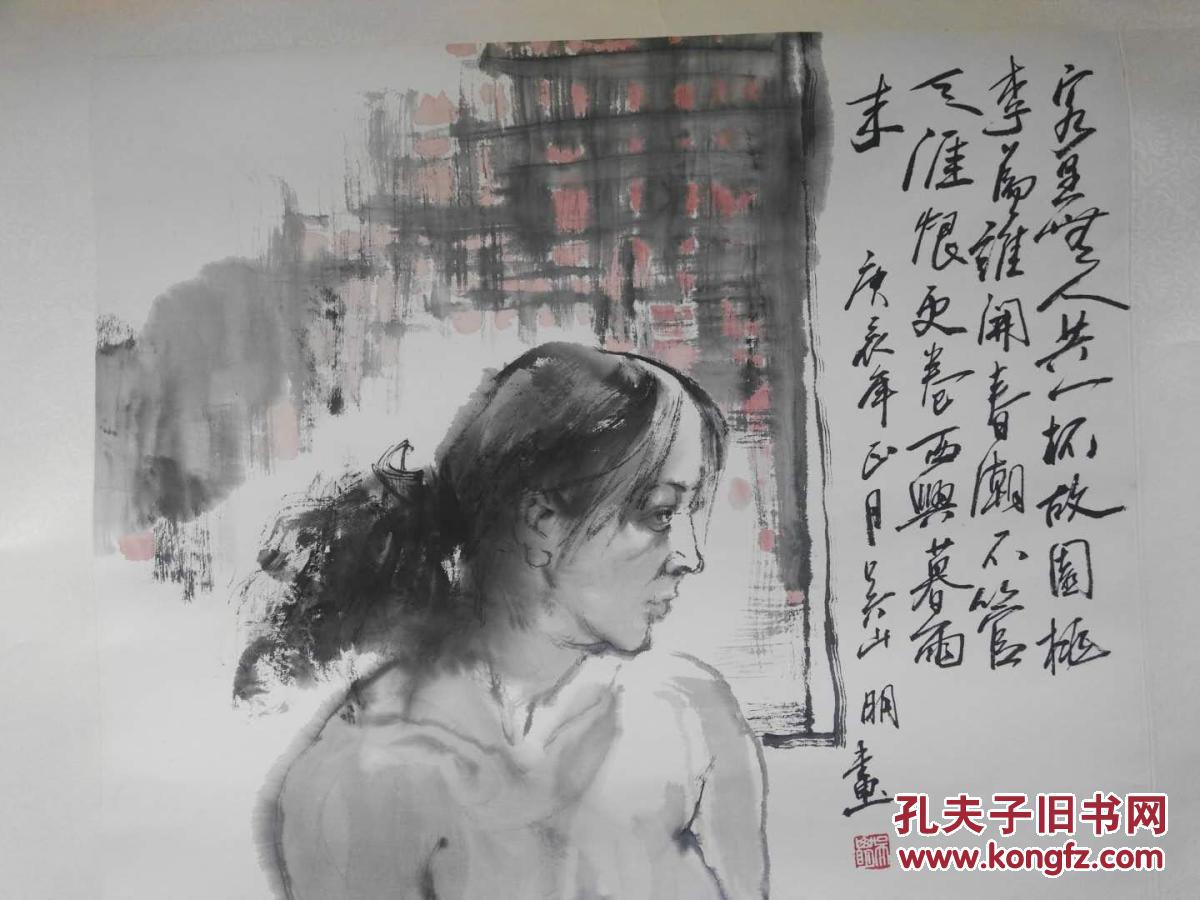 客里無人共一杯故園桃
李為誰開春潮不管
天涯恨更卷西興暮雨
来
庚辰年正月吴山明畫
孔夫子旧书网
www.kongfz.com